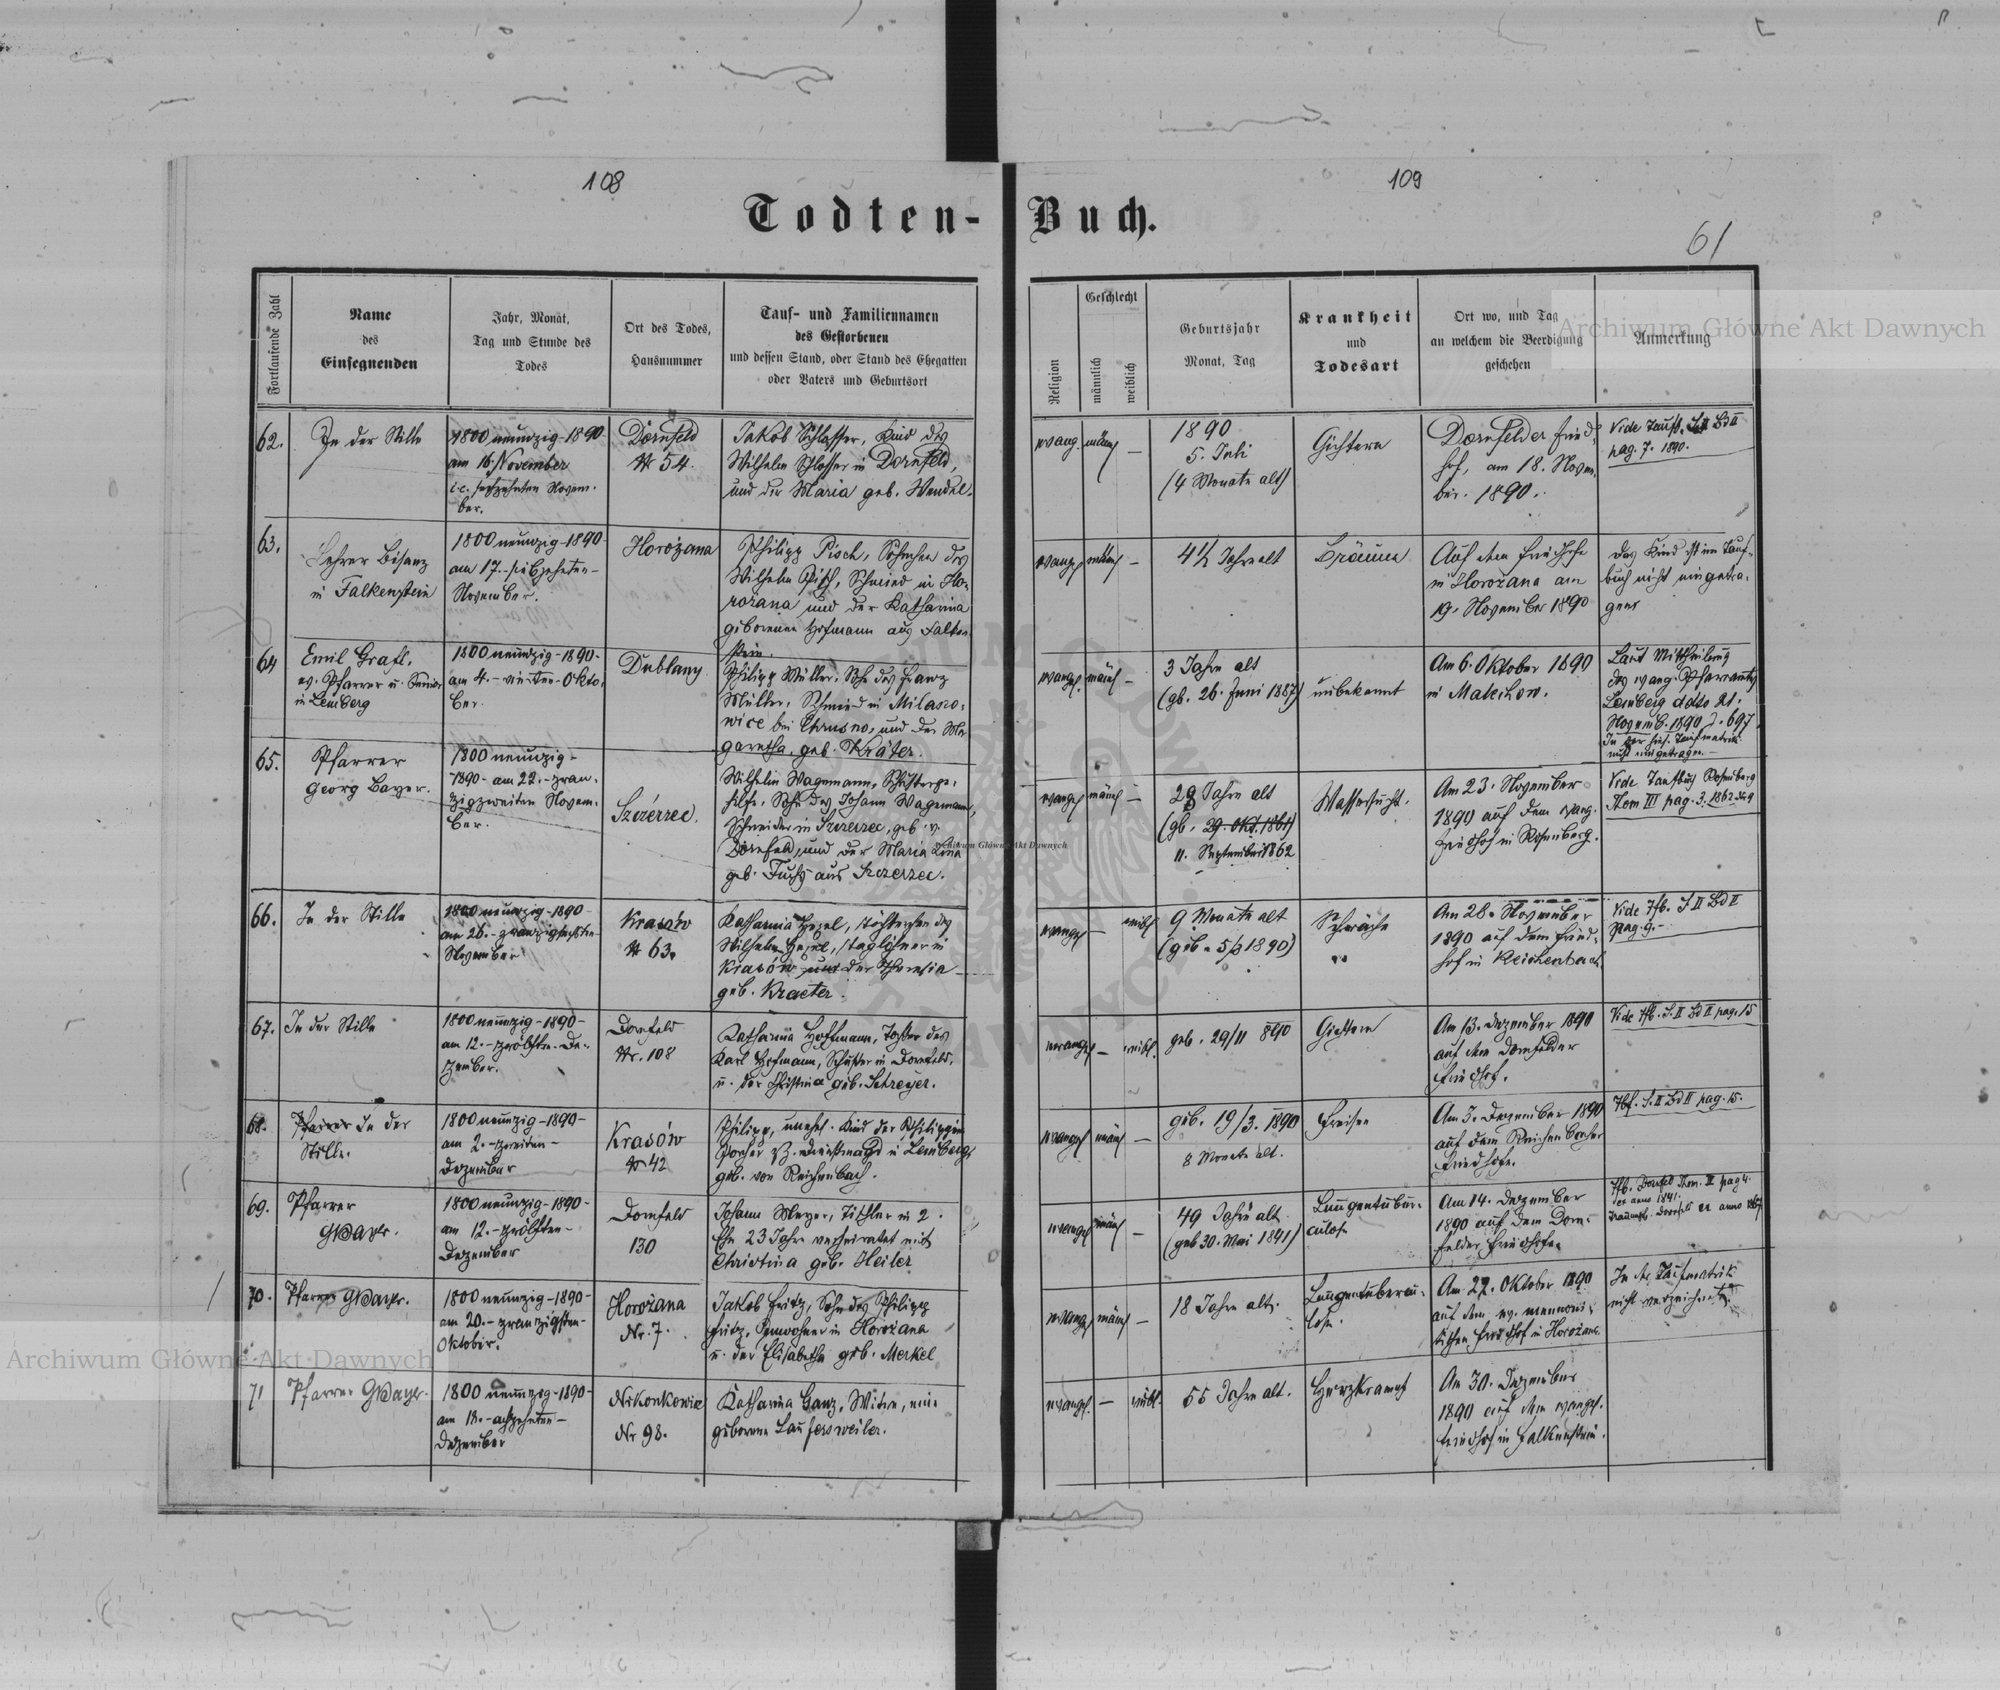 108
109
Todten-
Buch.
61
Fortlaufende Zahl
Name
des
Einsegnenden
Jahr, Monat,
Tag und Stunde des
Todes
Ort des Todes,
Hausnummer
Tauf- und Familiennamen
des Gestorbenen
und dessen Stand, oder Stand des Ehegatten
oder Vaters und Geburtsort
Religion
Geschlecht
männlich
weiblich
Geburtsjahr
Monat, Tag
Krankheit
und
Todesart
Ort wo, und Tag
an welchem die Beerdigung
geschehen
Anmerkung
Archiwum Główne Akt Dawnych
62.
In der Stille
1800 neunzig-1890
am 16. November
i.e. sechzehnten Novem-
ber.
Dornfeld
№ 54.
Jakob Schlosser, Kind des
Wilhelm Schlosser in Dornfeld,
und der Maria geb. Wendel.
evang.
männl
—
1890
5. Juli
(4 Monate alt)
Gichtern
Dornfelder Fried-
hof, am 18. Novem-
ber. 1890.
Vide Taufb. Bd II
pag. 7. 1890.
63.
Lehrer Bisanz
in Falkenstein
1800 neunzig-1890-
am 17.-siebzehnten-
November.
Horożana
Philipp Pisch, Söhnchen des
Wilhelm Pisch, Schmied in Ho-
rożana und der Katharina
geborenen Hofmann aus Falken-
stein.
evangel
männl
—
4½ Jahre alt
Bräune
Auf dem Friedhofe
in Horożana am
19. November 1890
Das Kind ist im Tauf-
buch nicht eingetra-
gen
64
Emil Grafl,
ev. Pfarrer u. Senior
in Lemberg
1800 neunzig-1890-
am 4.-vierten-Okto-
ber.
Dublany
Philipp Müller, Sohn des Franz
Müller, Schmied in Milano-
wice bei Chrusno, und der Mar-
garetha, geb. Kräter.
evangel.
männl
—
3 Jahre alt
(gb. 26. Juni 1887)
unbekannt
Am 6. Oktober 1890
in Malechow.
Laut Mittheilung
des evang. Pfarramtes
Lemberg ddto 21.
Novemb. 1890 Z. 697
In der hies. Taufmatrik
nicht eingetragen.-
65.
Pfarrer
Georg Bayer.
1800 neunzig-
1890- am 22.-zwan-
zigzweiten Novem-
ber.
Szczerzec.
Wilhelm Wagemann,
Sohn des Johann Wagemann,
Schneider in Szczerzec, geb. v.
Dornfeld, und der Maria
geb. Fuchs aus Szczerzec.
evangel
männl
—
28 Jahre alt
(gb. 29. Okt. 1861)
11. September 1862
Wassersucht.
Am 23. November
1890 auf dem evang.
Friedhof in Rosenberg.
Vide Taufbuch Rosenberg
Tom III pag. 3. 1862
Archiwum Główne Akt Dawnych
66.
In der Stille
1800 neunzig-1890-
am 26.-zwanzigsechsten-
November
Krasów
№ 63.
Katharina Hesel, Töchterchen des
Wilhelm Hesel, Taglöhner in
Krasów und der Theresia
geb. Kraeter.
evangel
—
weibl
9 Monate alt
(geb. 5/2 1890)
Schwäche
Am 28. November
1890 auf dem Fried-
hof in Reichenbach
Vide Tfb. S. II Bd II
pag. 9.-
67.
In der Stille
1800 neunzig-1890-
am 12.-zwölften-De-
zember.
Dornfeld
Nr. 108
Katharina Hoffmann, Tochter des
Karl Hofmann, Schuster in Dornfeld,
u. der Christina geb. Schreyer.
evangel
—
weibl.
geb. 29/11 890
Gichtern
Am 13. Dezember 1890
auf dem Dornfelder
Friedhof.
Vide Tfb. S. II Bd II pag. 15
68.
Pfarrer In der
Stille.
1800 neunzig-1890-
am 2.-zweiten-
Dezember
Krasów
№ 42
Philipp, unehel. Kind der Philippine
Dienstmagd in Lemberg,
geb. von Reichenbach.
evangel
männl
—
geb. 19/3. 1890
8 Monate alt.
Freisen
Am 3. Dezember 1890
auf dem Reichenbacher
Friedhofe.
Tbf. S. II Bd II pag. 15.
69.
Pfarrer
GBayer.
1800 neunzig-1890-
am 12.-zwölften-
Dezember
Dornfeld
130
Johann Meyer, Tischler in 2.
Ehe 23 Jahre verheiratet mit
Christina geb. Heiler
evangel
männl
—
49 Jahre alt
(geb 30. Mai 1841)
Lungentuber-
culose
Am 14. Dezember
1890 auf dem Dorn-
felder Friedhofe.
Tfb. Dornfeld Tom. II pag 4.
ex anno 1841.
Dornfeld ex anno 1867
70.
Pfarrer GBayer.
1800 neunzig-1890-
am 20.-zwanzigsten-
Oktober.
Horożana
Nr. 7.
Jakob Fritz, Sohn des Philipp
Fritz, Inwohner in Horożana
u. der Elisabetha geb. Merkel
evangel
männl
—
18 Jahre alt.
Lungentubercu-
lose.
Am 22. Oktober 1890
auf dem ev. mennoni-
tischen Friedhof in Horożana.
In der Taufmatrik
nicht verzeichnet
Archiwum Główne Akt Dawnych
71
Pfarrer GBayer.
1800 neunzig-1890-
am 18.-achzehnten-
Dezember
Nikonkowice
Nr 98.
Katharina Ganz, Witwe, eine
geborene Laufersweiler.
evangel.
—
weibl.
55 Jahre alt.
Herzkrampf
Am 30. Dezember
1890 auf dem evangel.
Friedhof in Falkenstein.